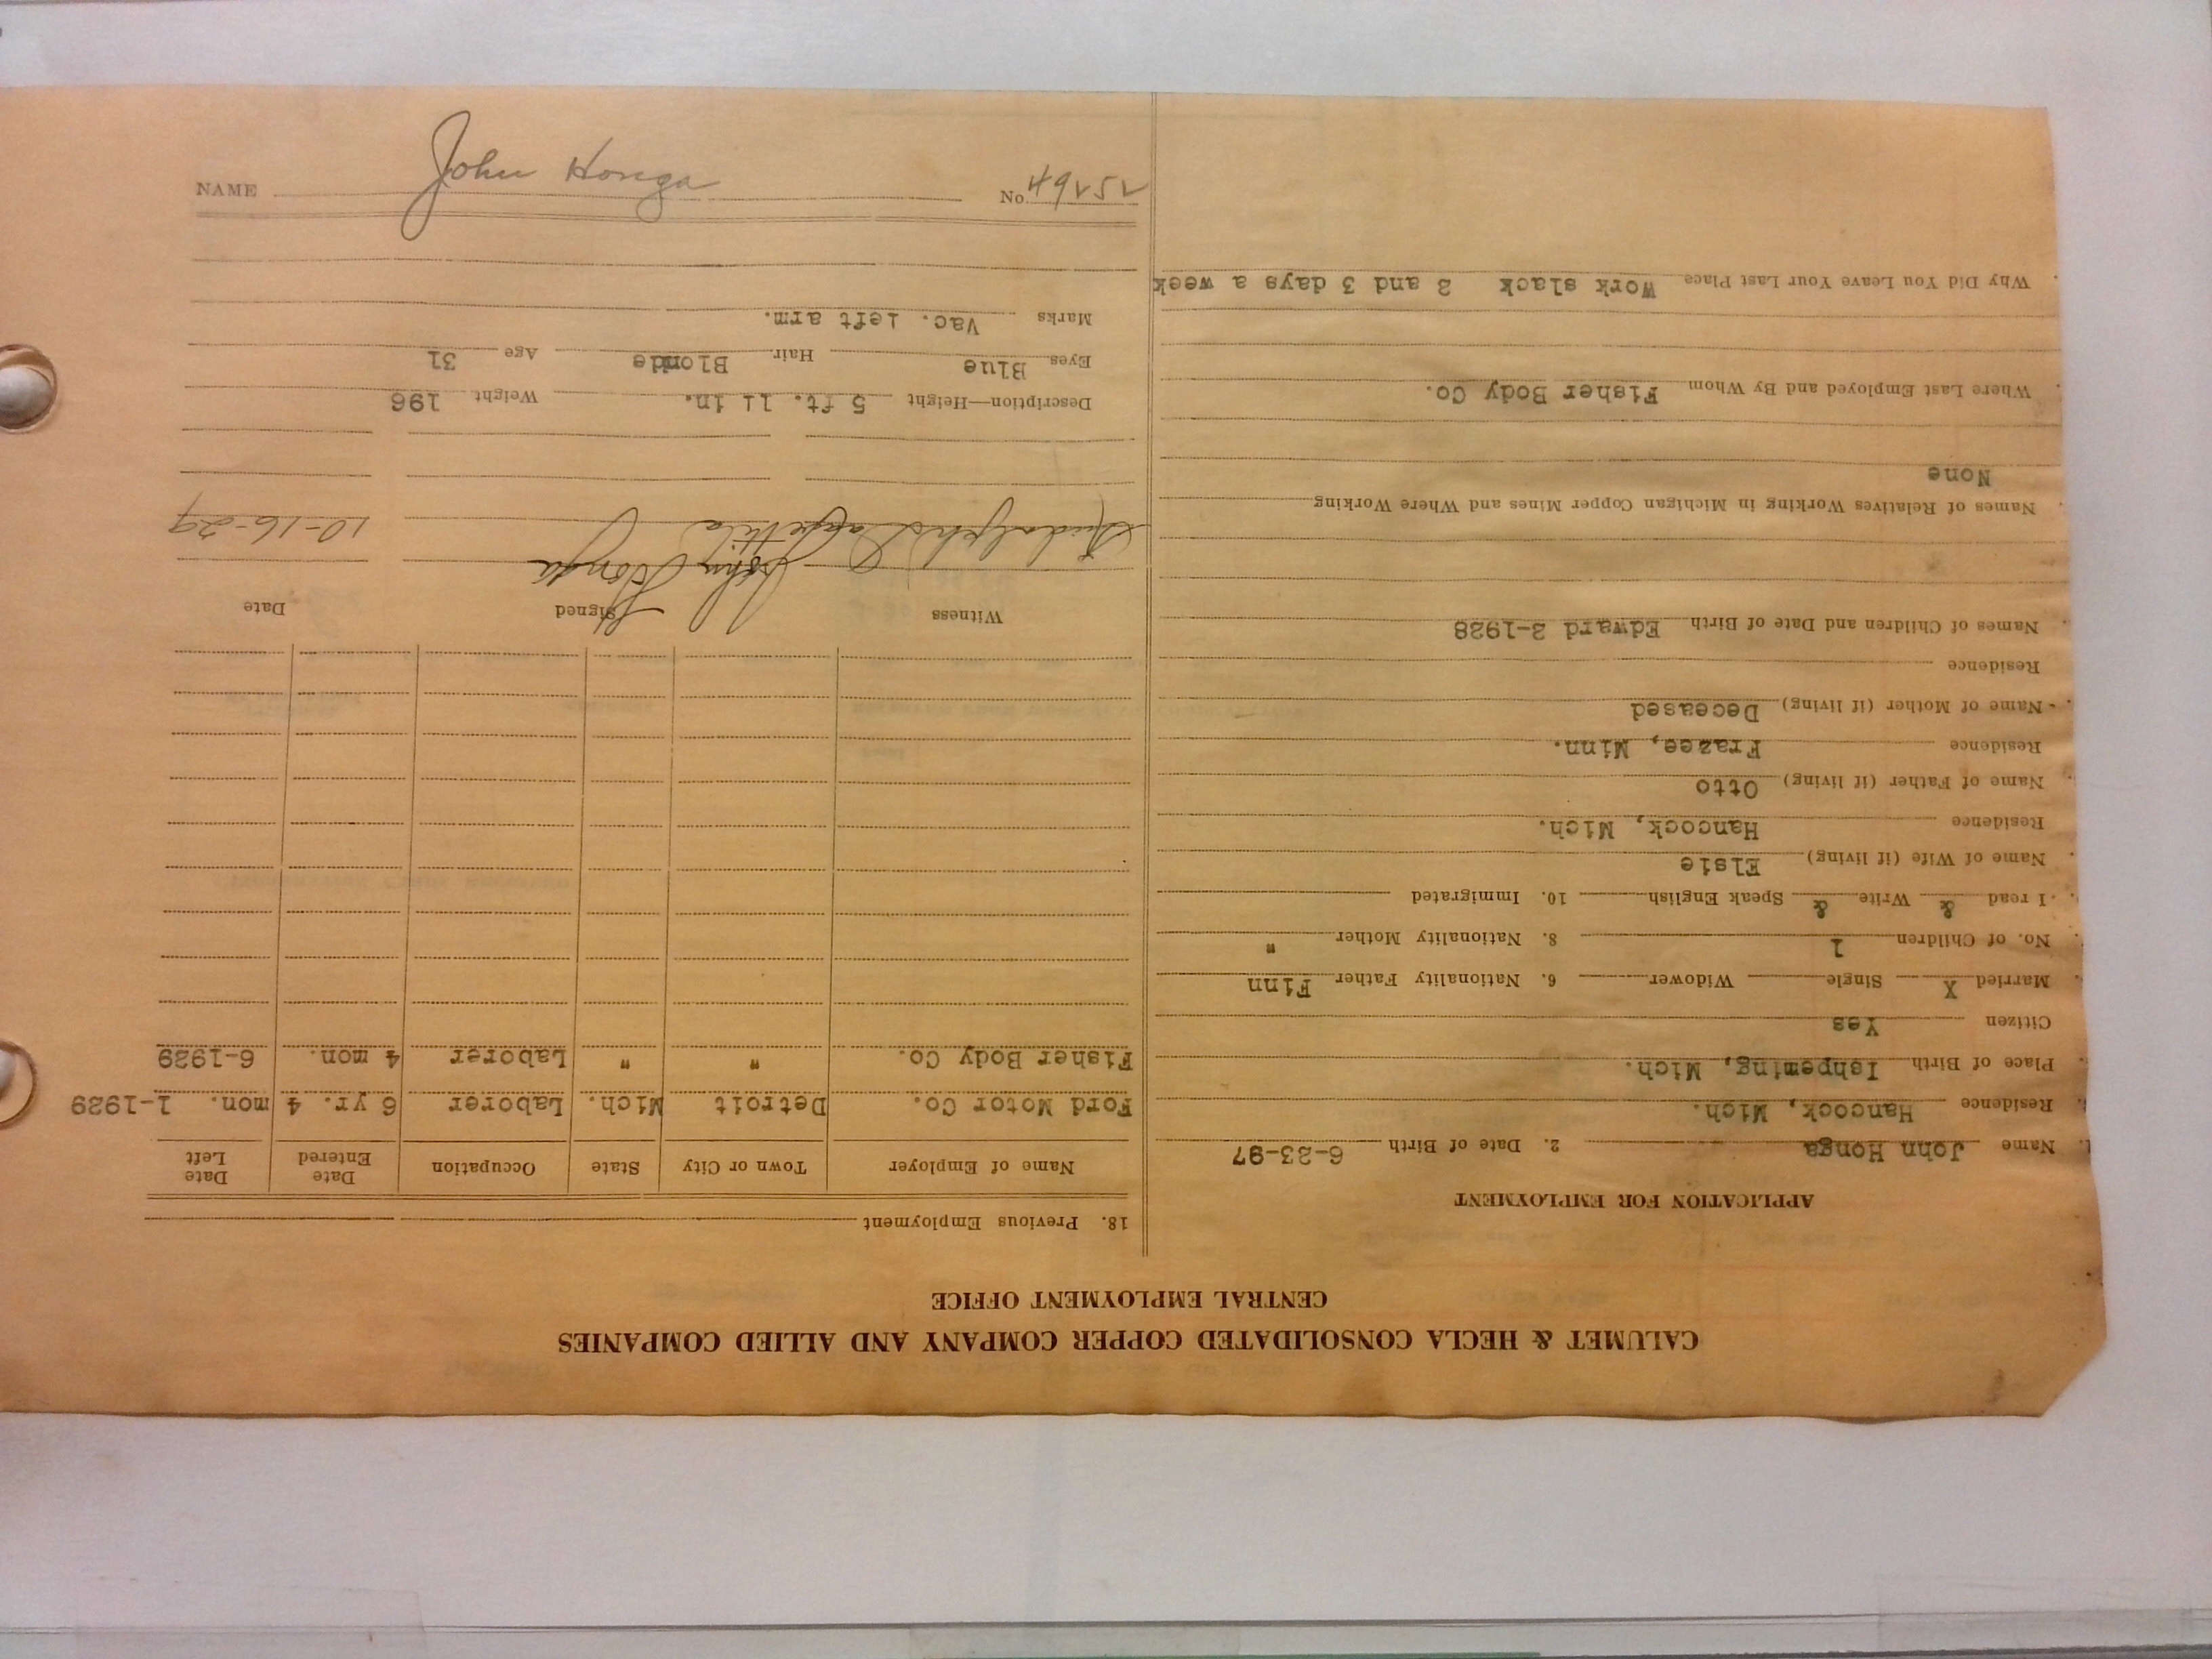 CALUMET & HECLA CONSOLIDATED COPPER COMPANY AND ALLIED COMPANIES
CENTRAL EMPLOYMENT OFFICE
APPLICATION FOR EMPLOYMENT
1. Name John Honga 2. Date of Birth 6-23-97
Residence Hancock, Mich.
Place of Birth Ishpeming, Mich.
Citizen Yes
Married X Single Widower 6. Nationality Father Finn
No. of Children 1 8. Nationality Mother "
I read & Write & Speak English 10. Immigrated
Name of Wife (if living) Elsie
Residence Hancock, Mich.
Name of Father (if living) Otto
Residence Frazee, Minn.
Name of Mother (if living) Deceased
Residence
Names of Children and Date of Birth Edward 2-1928
Names of Relatives Working in Michigan Copper Mines and Where Working
None
Where Last Employed and By Whom Fisher Body Co.
Why Did You Leave Your Last Place Work slack 2 and 3 days a week
18. Previous Employment
Name of Employer Town or City State Occupation Date Entered Date Left
Ford Motor Co. Detroit Mich. Laborer 6 yr. 4 mon. 1-1929
Fisher Body Co. " " Laborer 4 mon. 6-1929
Witness Signed Date
John Honga 10-16-29
Description—Height 5 ft. 11 in. Weight 196
Eyes Blue Hair Blonde Age 31
Marks Vac. left arm.
NAME John Honga No. 49252